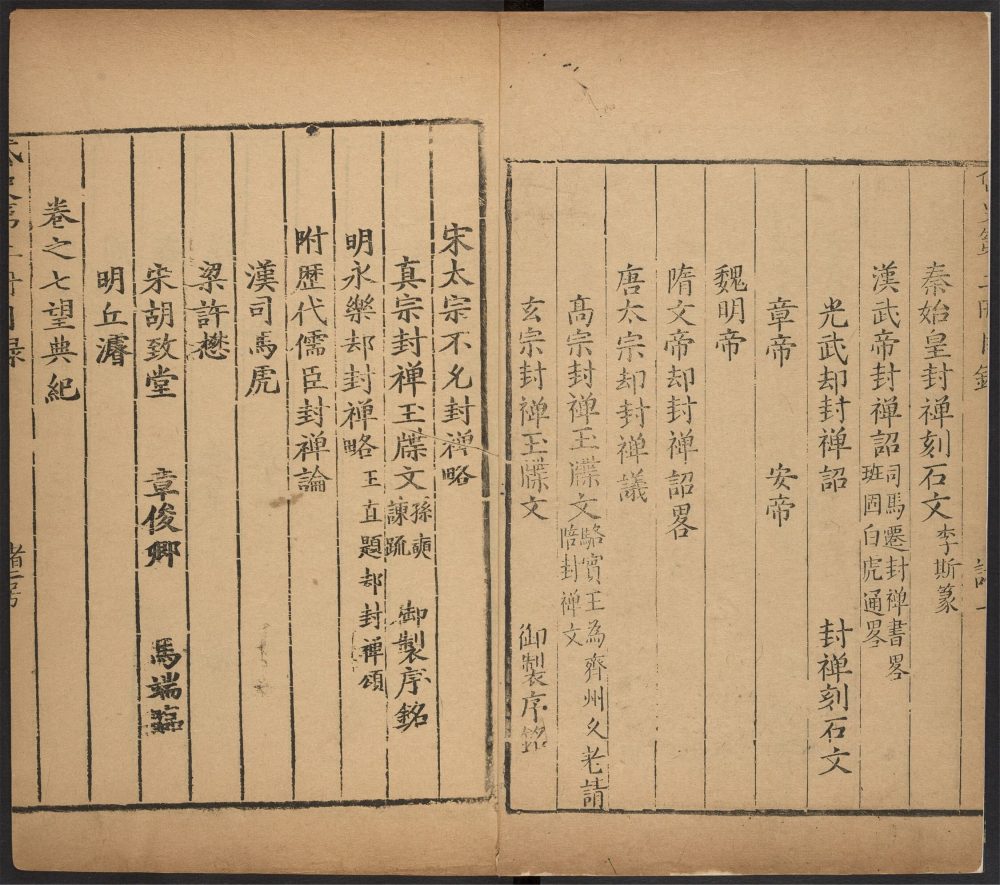 秦始皇封禪刻石文 李斯篆
漢武帝封禪詔 司馬遷封禪書畧 班固白虎通畧
光武却封禪詔 封禪刻石文
章帝 安帝
魏明帝
隋文帝却封禪詔畧
唐太宗却封禪議
高宗封禪玉牒文 駱賓王為齊州父老請陪封禪文
玄宗封禪玉牒文 御製序銘
宋太宗不允封禪略
真宗封禪玉牒文 孫奭諫疏 御製序銘
明永樂却封禪略 王直題却封禪頌
附歷代儒臣封禪論
漢司馬虎
梁許懋
宋胡致堂 章俊卿 馬端臨
明丘濬
卷之七望典紀